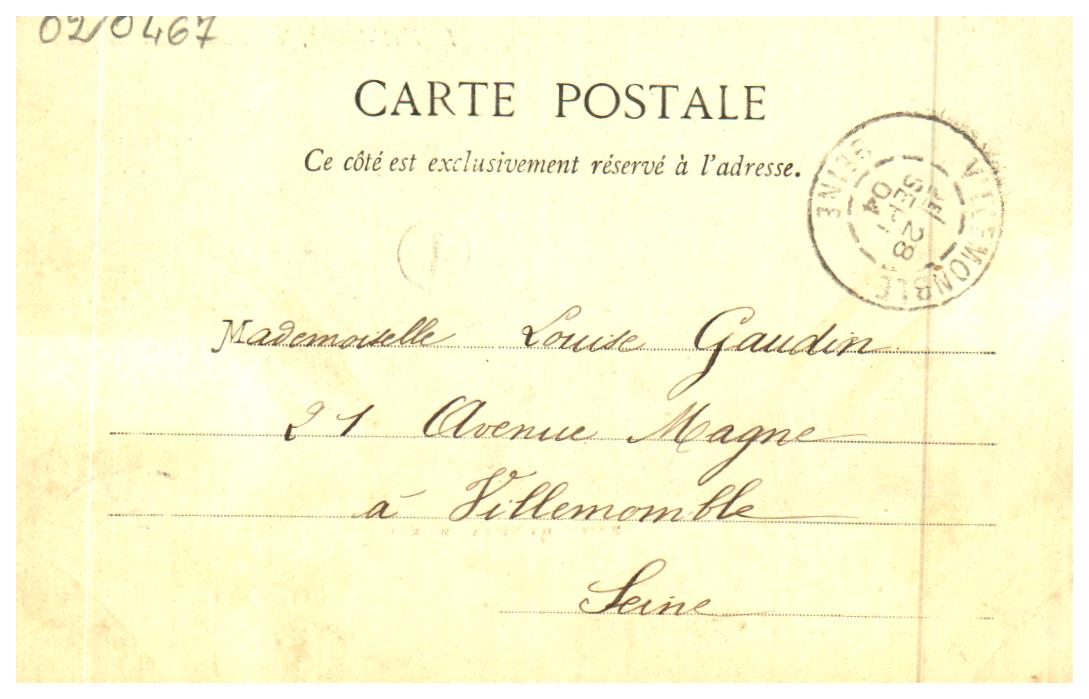 02/0467
CARTE POSTALE
Ce côté est exclusivement réservé à l'adresse.
VILLEMOMBLE
SEINE
28
SEPT
04
1
Mademoiselle Louise Gaudin
21 Avenue Magne
à Villemomble
Seine